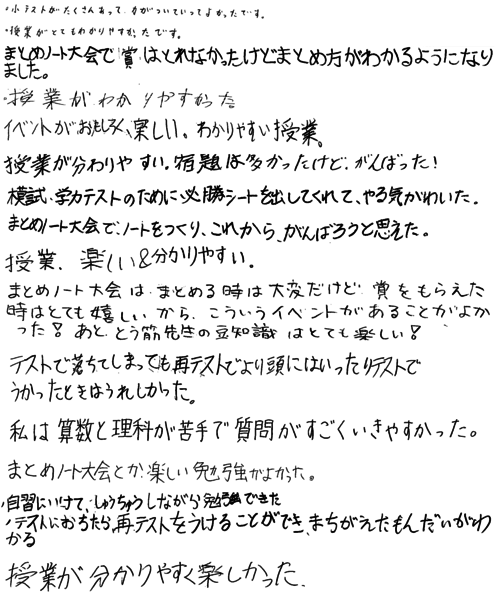 ・小テストがたくさんあって、力がついていってよかったです。
・授業がとてもわかりやすかったです。
まとめノート大会で賞はとれなかったけどまとめ方がわかるようになり
ました。
・授業がわかりやすかった
イベントがおもしろく、楽しい。わかりやすい授業。
授業が分わりやすい。宿題は多かったけど、がんばった!
模試・学力テストのために必勝シートを出してくれて、やる気がわいた。
まとめノート大会で、ノートをつくり、これから、がんばろうと思えた。
授業、楽しい&分かりやすい。
まとめノート大会は、まとめる時は大変だけど、賞をもらえた
時はとても嬉しいから、こういうイベントがあることがよか
った!あと、とう筋先生の豆知識はとても楽しい!
テストで落ちてしまっても再テストでより頭にはいったりテストで
うかったときはうれしかった。
私は算数と理科が苦手で質問がすごくいきやすかった。
まとめノート大会とか、楽しい勉強がよかった。
・自習にいけて、しゅうちゅうしながら勉強できた
・テストにおちたら、再テストをうけることができ、まちがえたもんだいがわ
かる
授業が分かりやすく楽しかった。